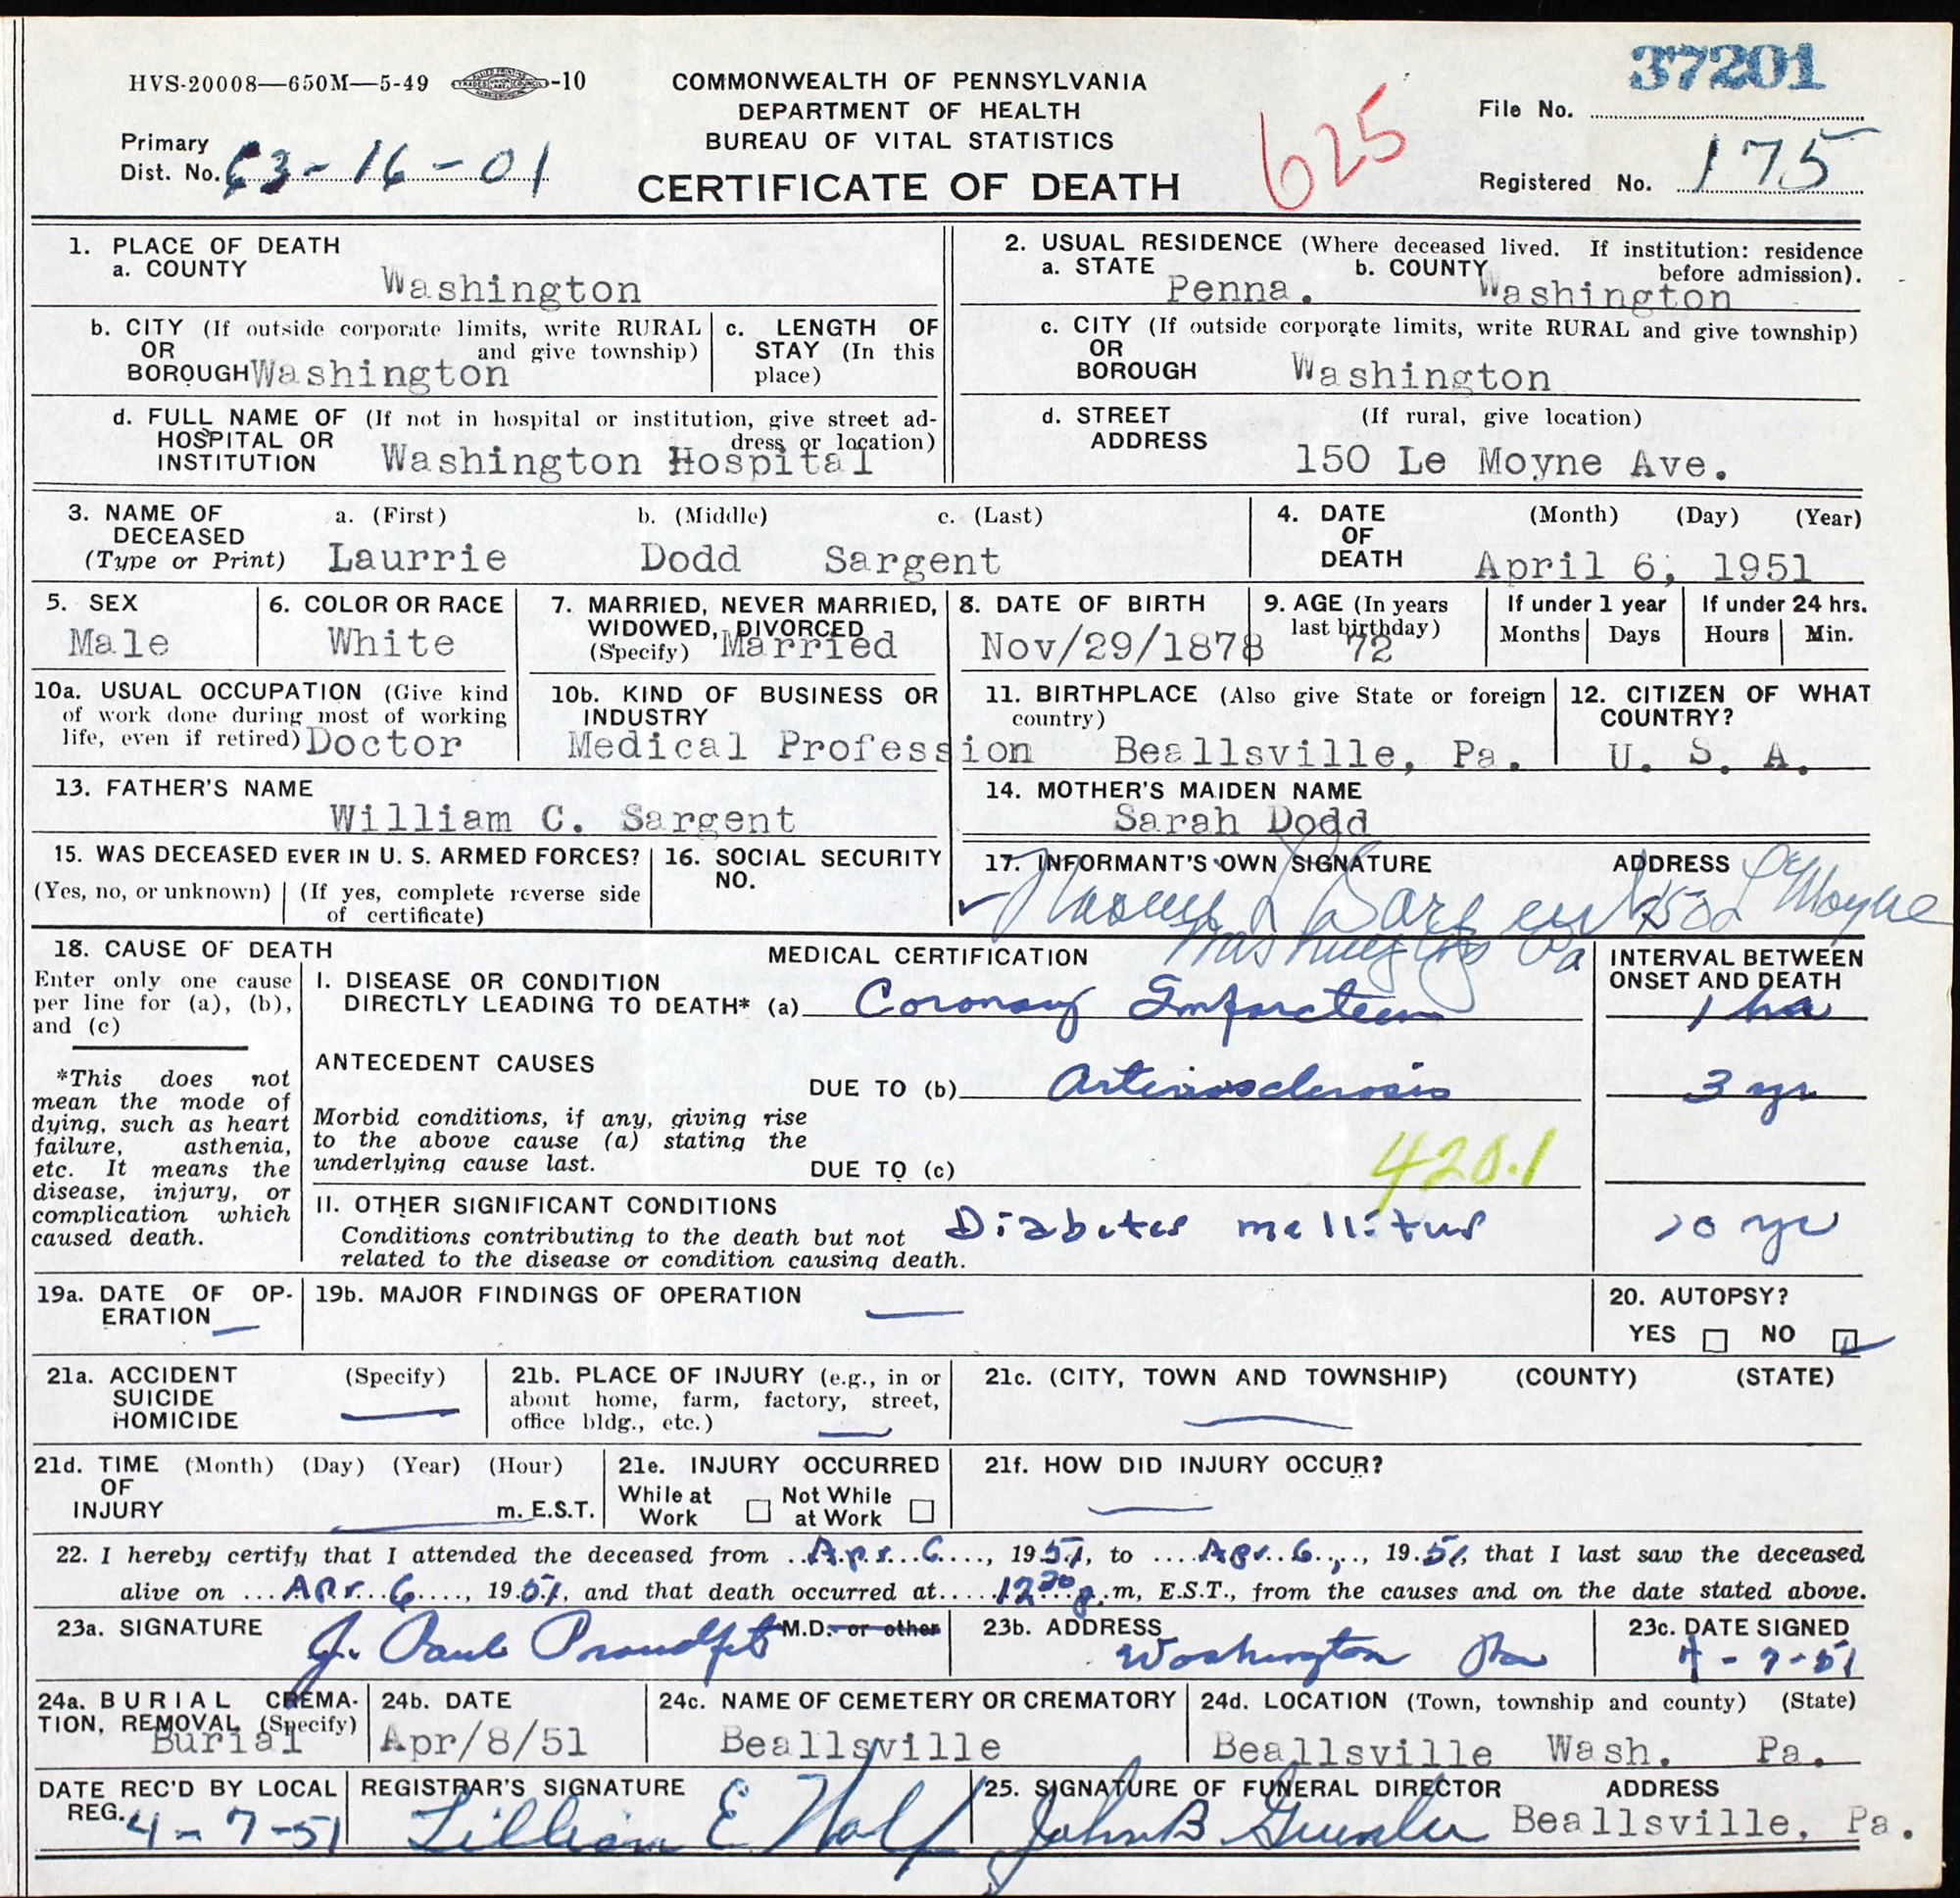 37201
HVS-20008—650M—5-49 -10
COMMONWEALTH OF PENNSYLVANIA
DEPARTMENT OF HEALTH
BUREAU OF VITAL STATISTICS
CERTIFICATE OF DEATH
625
File No.
Primary
Dist. No. 63-16-01
Registered No. 175
1. PLACE OF DEATH
a. COUNTY
Washington
2. USUAL RESIDENCE (Where deceased lived. If institution: residence before admission).
a. STATE Penna. b. COUNTY Washington
b. CITY (If outside corporate limits, write RURAL
OR and give township)
BOROUGH Washington
c. LENGTH OF
STAY (In this
place)
c. CITY (If outside corporate limits, write RURAL and give township)
OR
BOROUGH Washington
d. FULL NAME OF (If not in hospital or institution, give street ad-
HOSPITAL OR dress or location)
INSTITUTION Washington Hospital
d. STREET (If rural, give location)
ADDRESS
150 Le Moyne Ave.
3. NAME OF a. (First) b. (Middle) c. (Last)
DECEASED
(Type or Print) Laurrie Dodd Sargent
4. DATE (Month) (Day) (Year)
OF
DEATH April 6, 1951
5. SEX
Male
6. COLOR OR RACE
White
7. MARRIED, NEVER MARRIED,
WIDOWED, DIVORCED
(Specify) Married
8. DATE OF BIRTH
Nov/29/1878
9. AGE (In years
last birthday)
72
If under 1 year
Months Days
If under 24 hrs.
Hours Min.
10a. USUAL OCCUPATION (Give kind
of work done during most of working
life, even if retired) Doctor
10b. KIND OF BUSINESS OR
INDUSTRY
Medical Profession
11. BIRTHPLACE (Also give State or foreign
country)
Beallsville, Pa.
12. CITIZEN OF WHAT
COUNTRY?
U. S. A.
13. FATHER'S NAME
William C. Sargent
14. MOTHER'S MAIDEN NAME
Sarah Dodd
15. WAS DECEASED EVER IN U. S. ARMED FORCES?
(Yes, no, or unknown) (If yes, complete reverse side
of certificate)
16. SOCIAL SECURITY
NO.
17. INFORMANT'S OWN SIGNATURE ADDRESS
Sargent 150 LeMoyne
Washington Pa
18. CAUSE OF DEATH
Enter only one cause
per line for (a), (b),
and (c)
*This does not
mean the mode of
dying, such as heart
failure, asthenia,
etc. It means the
disease, injury, or
complication which
caused death.
MEDICAL CERTIFICATION
INTERVAL BETWEEN
ONSET AND DEATH
I. DISEASE OR CONDITION
DIRECTLY LEADING TO DEATH* (a) Coronary Infarction 1 hr
ANTECEDENT CAUSES
DUE TO (b) Arteriosclerosis 3 yr
Morbid conditions, if any, giving rise
to the above cause (a) stating the
underlying cause last.
DUE TO (c)
420.1
II. OTHER SIGNIFICANT CONDITIONS
Conditions contributing to the death but not
related to the disease or condition causing death.
Diabetes mellitus 10 yr
19a. DATE OF OP-
ERATION —
19b. MAJOR FINDINGS OF OPERATION —
20. AUTOPSY?
YES NO
21a. ACCIDENT (Specify)
SUICIDE
HOMICIDE —
21b. PLACE OF INJURY (e.g., in or
about home, farm, factory, street,
office bldg., etc.) —
21c. (CITY, TOWN AND TOWNSHIP) (COUNTY) (STATE)
—
21d. TIME (Month) (Day) (Year) (Hour)
OF
INJURY m. E.S.T.
21e. INJURY OCCURRED
While at Work Not While at Work
21f. HOW DID INJURY OCCUR?
—
22. I hereby certify that I attended the deceased from Apr. 6, 1951, to Apr. 6, 1951, that I last saw the deceased
alive on Apr. 6, 1951, and that death occurred at 12 30 p.m, E.S.T., from the causes and on the date stated above.
23a. SIGNATURE J. Paul Proudfit M.D. or other
23b. ADDRESS Washington Pa
23c. DATE SIGNED
4-7-51
24a. BURIAL CREMA-
TION, REMOVAL (Specify)
Burial
24b. DATE
Apr/8/51
24c. NAME OF CEMETERY OR CREMATORY
Beallsville
24d. LOCATION (Town, township and county) (State)
Beallsville Wash. Pa.
DATE REC'D BY LOCAL
REG. 4-7-51
REGISTRAR'S SIGNATURE
Lillian E
25. SIGNATURE OF FUNERAL DIRECTOR ADDRESS
John B Beallsville, Pa.